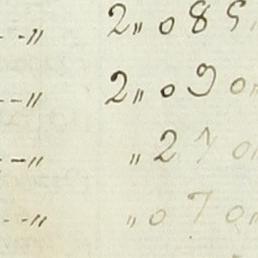 - - „ 2 „ 0 8 5
- - „ 2 „ 0 9 0 „
- - „ „ 2 7 0 „
- - „ „ 0 7 0 „